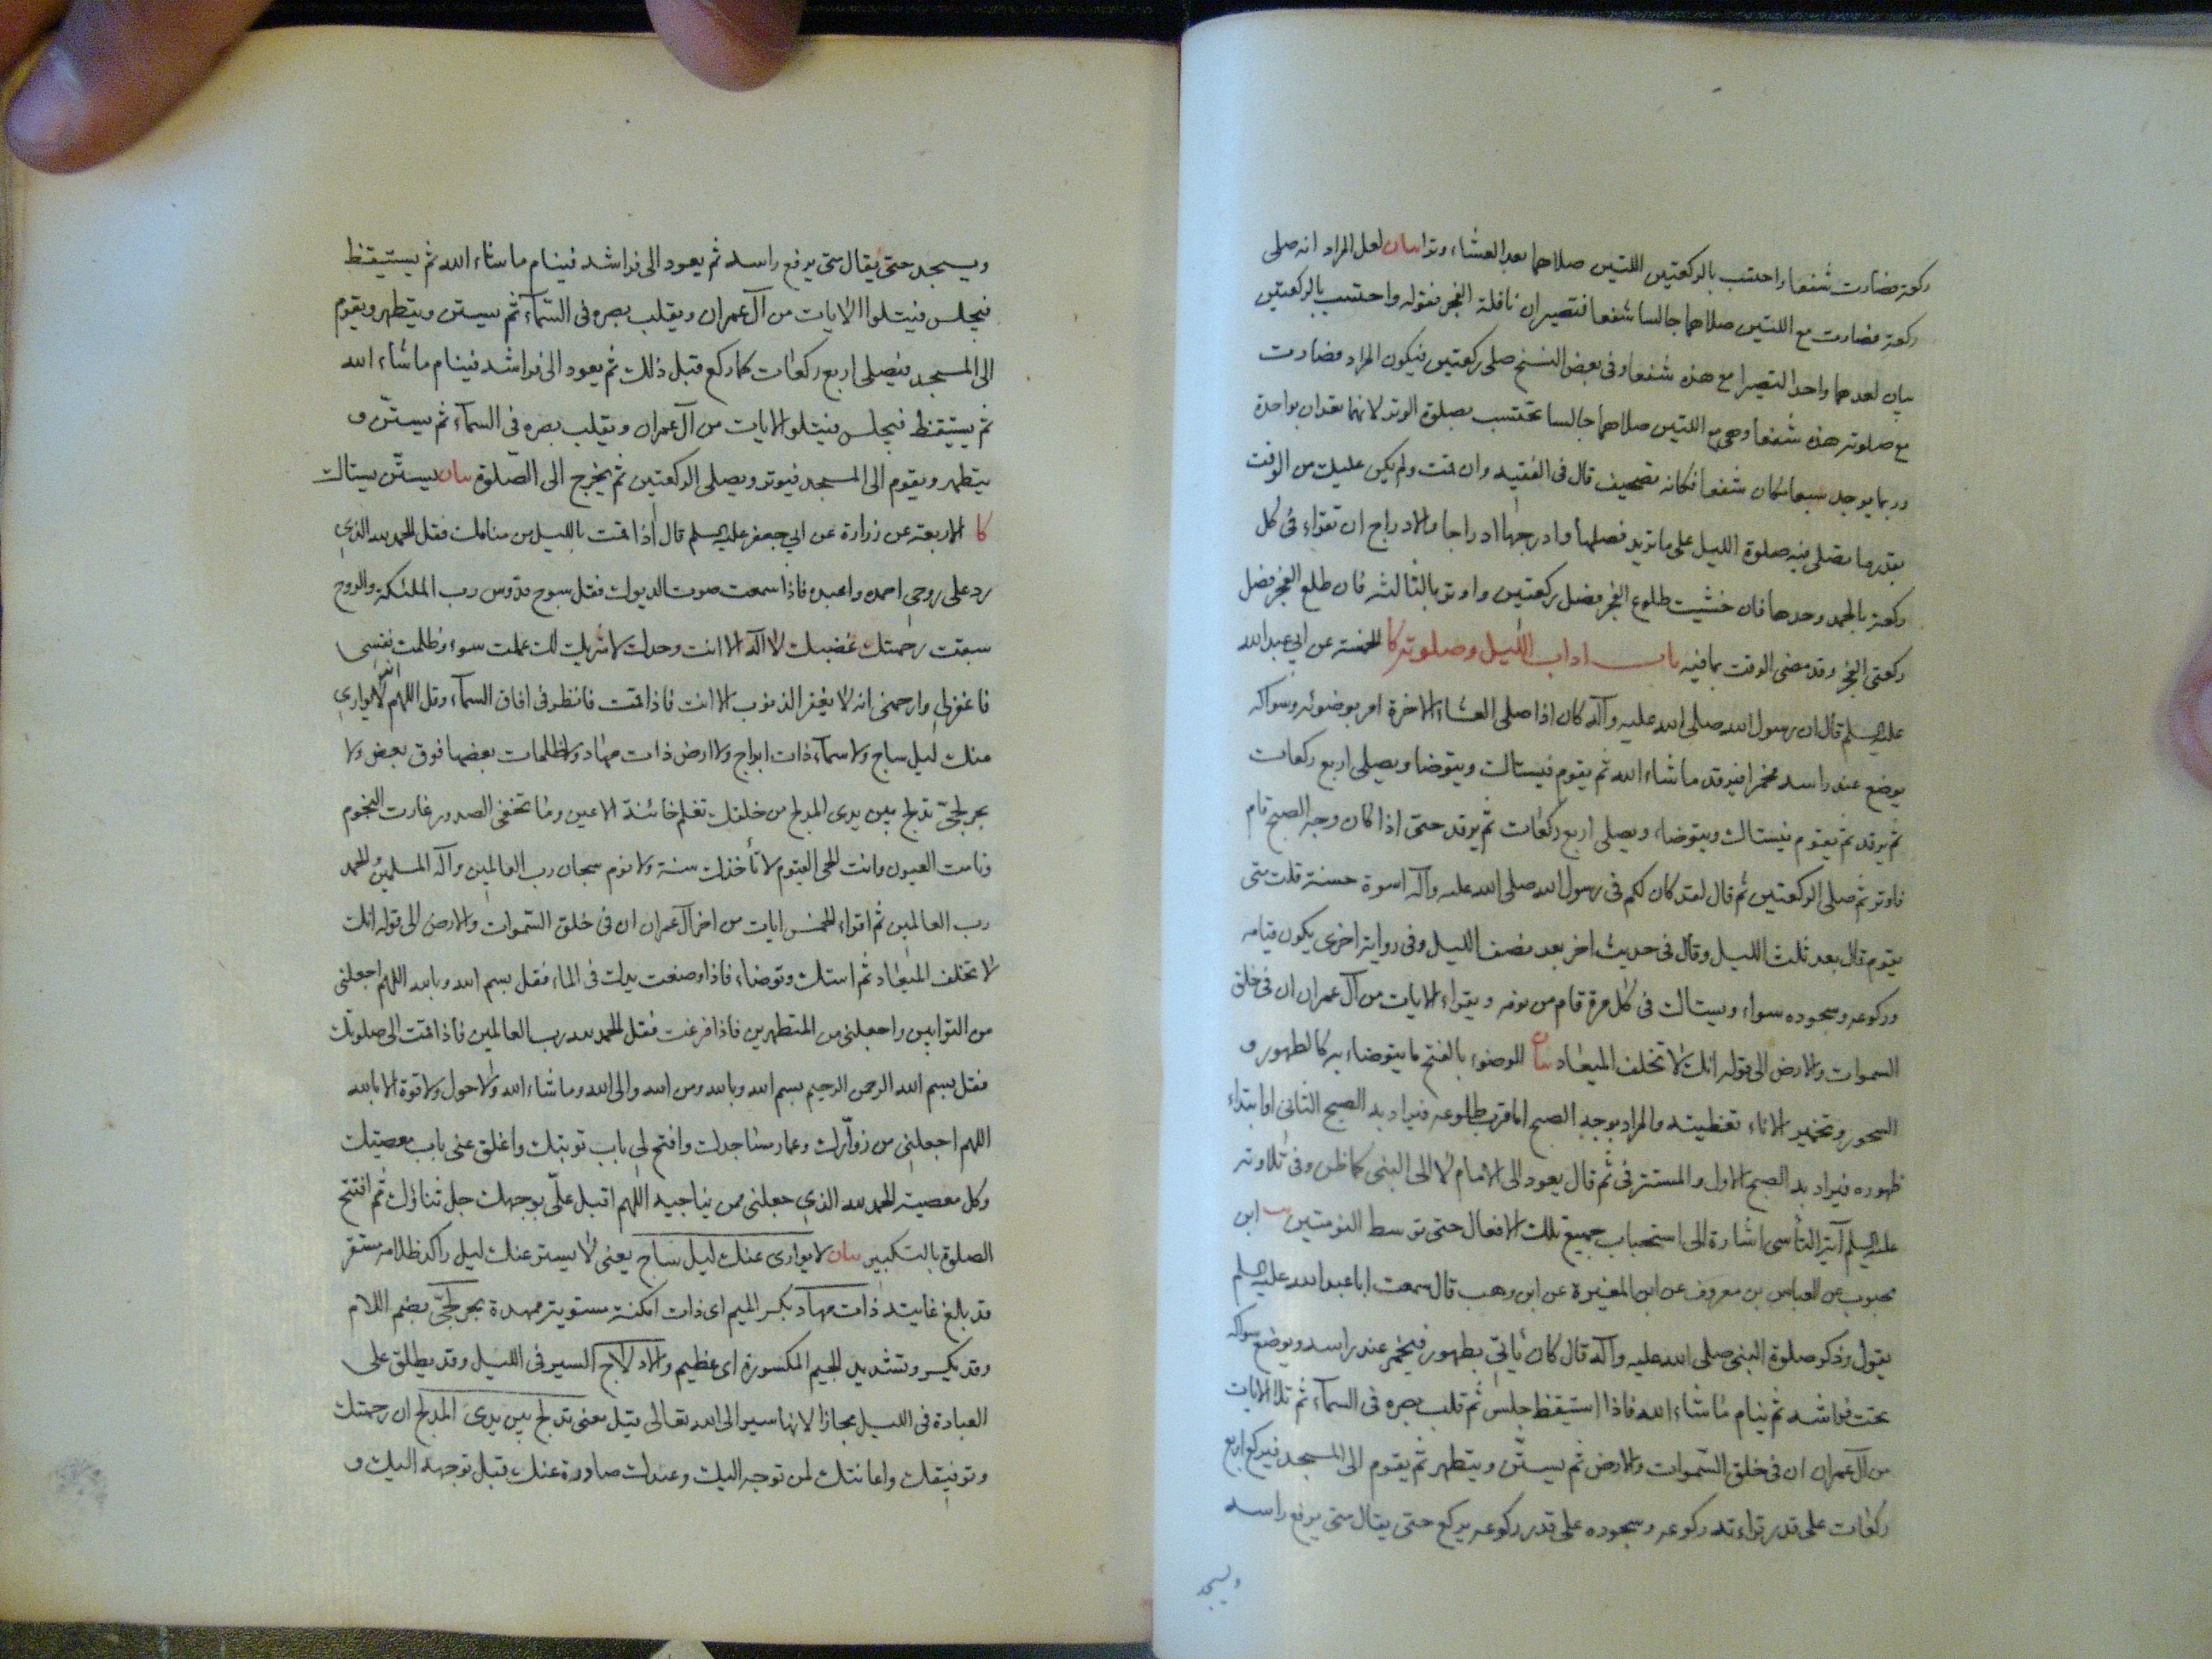 ركعة فصارت شفعا واحتسب بالركعتين اللتين صلاهما بعد العشاء وترا بيان لعل المراد انه صلى
ركعة فصارت مع اللتين صلاهما جالسا شفعا فتصيران نافلة الفجر فقوله واحتسب بالركعتين
بيان لعدهما واحدا لتصيرا مع هذه شفعا وفى بعض النسخ صلى ركعتين فيكون المراد فصارت
مع صلوته هذه شفعا وهى مع اللتين صلاهما جالسا تحتسب بصلوة الوتر لانهما تعدان بواحدة
وربما يوجد سبعا مكان شفعا فكانه تصحيف قال فى الفقيه وان قمت ولم يكن عليك من الوقت
بقدر ما تصلى فيه صلوة الليل على ما تريد فصلها وادرجها ادراجا والادراج ان تقراء فى كل
ركعة بالحمد وحدها فان خشيت طلوع الفجر فصل ركعتين واوتر بالثالثة فان طلع الفجر فصل
ركعتى الفجر وقد مضى الوقت بما فيه باب اداب الليل وصلوته كا الخمسة عن ابي عبد الله
عليه السلم قال ان رسول الله صلى الله عليه وآله كان اذا صلى العشاء الاخرة امر بوضوئه وسواكه
يوضع عند راسه مخمرا فيرقد ما شاء الله ثم يقوم فيستاك ويتوضا ويصلى اربع ركعات
ثم يرقد ثم يقوم فيستاك ويتوضاء ويصلى اربع ركعات ثم يرقد حتى اذا كان وجه الصبح قام
فاوتر ثم صلى الركعتين ثم قال لقد كان لكم فى رسول الله صلى الله عليه وآله اسوة حسنة قلت متى
يقوم قال بعد ثلث الليل وقال فى حديث اخر بعد نصف الليل وفى رواية اخرى يكون قيامه
وركوعه وسجوده سواء ويستاك فى كل مرة قام من نومه ويقراء الايات من آل عمران ان فى خلق
السموات والارض الى قوله انك لا تخلف الميعاد بيان الوضوء بالفتح ما يتوضاء به كالطهور و
السحور وتخمير الاناء تغطيته والمراد بوجه الصبح اما قرب طلوعه فيراد به الصبح الثانى او ابتداء
ظهوره فيراد به الصبح الاول والمستتر فى ثم قال يعود الى الامام لا الى النبى كما ظن وفى تلاوته
عليه السلم آية التأسى اشارة الى استحباب جميع تلك الافعال حتى توسط النومتين يب ابن
محبوب عن العباس بن معروف عن ابن المغيرة عن ابن وهب قال سمعت ابا عبد الله عليه السلم
يقول وذكر صلوة النبى صلى الله عليه وآله قال كان يأتى بطهور فيخمر عند راسه ويوضع سواكه
تحت فراشه ثم ينام ما شاء الله فاذا استيقظ جلس ثم قلب بصره فى السماء ثم تلا الايات
من آل عمران ان فى خلق السموات والارض ثم يستن ويتطهر ثم يقوم الى المسجد فيركع اربع
ركعات على قدر قراءته ركوعه وسجوده على قدر ركوعه يركع حتى يقال متى يرفع راسه
ويسجد
ويسجد حتى يقال متى يرفع راسه ثم يعود الى فراشه فينام ما شاء الله ثم يستيقظ
فيجلس فيتلوا الايات من آل عمران ويقلب بصره فى السماء ثم يستن ويتطهر ويقوم
الى المسجد فيصلى اربع ركعات كما ركع قبل ذلك ثم يعود الى فراشه فينام ما شاء الله
ثم يستيقظ فيجلس فيتلو الايات من آل عمران ويقلب بصره فى السماء ثم يستن و
يتطهر ويقوم الى المسجد فيوتر ويصلى الركعتين ثم يخرج الى الصلوة بيان يستن يستاك
كا الاربعة عن زرارة عن ابي جعفر عليه السلم قال اذا قمت بالليل من منامك فقل الحمد لله الذى
رد على روحى احمده واعبده فاذا سمعت صوت الديوك فقل سبوح قدوس رب الملئكة والروح
سبقت رحمتك غضبك لا اله الا انت وحدك لا شريك لك عملت سوء وظلمت نفسى
فاغفر لى وارحمنى انه لا يغفر الذنوب الا انت فاذا قمت فانظر فى افاق السماء وقل اللهم انه لا يوارى
عنك ليل ساج ولا سماء ذات ابراج ولا ارض ذات مهاد ولا ظلمات بعضها فوق بعض ولا
بحر لجى تدلج بين يدى المدلج من خلقك تعلم خائنة الاعين وما تخفى الصدور غارت النجوم
ونامت العيون وانت الحى القيوم لا تأخذك سنة ولا نوم سبحان رب العالمين وآله المسلمين والحمد
رب العالمين ثم اقراء الخمس ايات من اخر آل عمران ان فى خلق السموات والارض الى قوله انك
لا تخلف الميعاد ثم استك وتوضاء فاذا وضعت يدك فى الماء فقل بسم الله وبالله اللهم اجعلنى
من التوابين واجعلنى من المتطهرين فاذا فرغت فقل الحمد لله رب العالمين فاذا قمت الى صلوتك
فقل بسم الله الرحمن الرحيم بسم الله وبالله ومن الله والى الله وما شاء الله ولا حول ولا قوة الا بالله
اللهم اجعلنى من زوارك وعمار مساجدك وافتح لى باب توبتك واغلق عنى باب معصيتك
وكل معصية الحمد لله الذى جعلنى ممن يناجيه اللهم اقبل على بوجهك جل ثناؤك ثم افتتح
الصلوة بالتكبير بيان لا يوارى عنك ليل ساج يعنى لا يستر عنك ليل راكد ظلامه مستقر
قد بالغ غايته ذات مهاد بكسر الميم اى ذات امكنة مستوية ممهدة بحر لجى بضم اللام
وقد يكسر وتشديد الجيم المكسورة اى عظيم والادلاج السير فى الليل وقد يطلق على
العبادة فى الليل مجازا لانها سير الى الله تعالى قيل معنى تدلج بين يدى المدلج ان رحمتك
وتوفيقك واعانتك لمن توجه اليك وعبدك صادرة عنك قبل توجهه اليك و